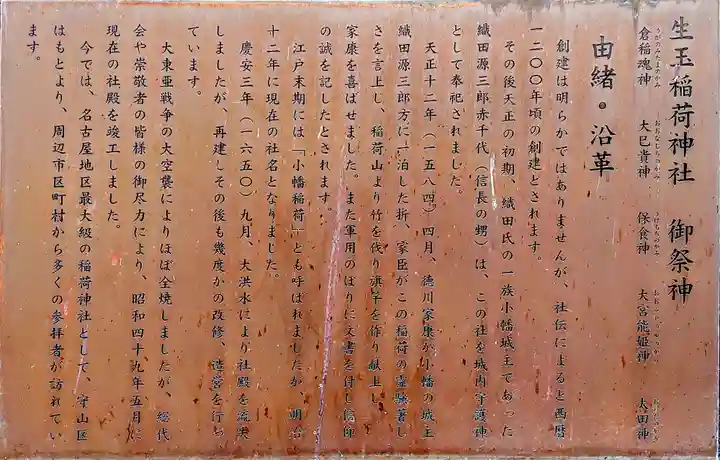 生玉稲荷神社　御祭神
倉稲魂神　大己貴神　保食神　大宮能姫神　太田神
由緒・沿革
創建は明らかではありませんが、社伝によると西暦
一二〇〇年頃の創建とされます。
その後天正の初期、織田氏の一族小幡城主であった
織田源三郎赤千代（信長の甥）は、この社を城内守護神
として奉祀されました。
天正十二年（一五八四）四月、徳川家康が小幡の城主
織田源三郎方に一泊した折、家臣がこの稲荷の霊験著し
さを言上し、稲荷山より竹を伐り旗竿を作り献上し、
家康を喜ばせました。また軍用のぼりに文書を付し信仰
の誠を記したとされます。
江戸末期には「小幡稲荷」とも呼ばれましたが、明治
十二年に現在の社名となりました。
慶安三年（一六五〇）九月、大洪水により社殿を流失
しましたが、再建しその後も幾度かの改修、造営を行っ
ています。
大東亜戦争の大空襲によりほぼ全焼しましたが、総代
会や崇敬者の皆様の御尽力により、昭和四十九年五月に
現在の社殿を竣工しました。
今では、名古屋地区最大級の稲荷神社として、守山区
はもとより、周辺市区町村から多くの参拝者が訪れてい
ます。